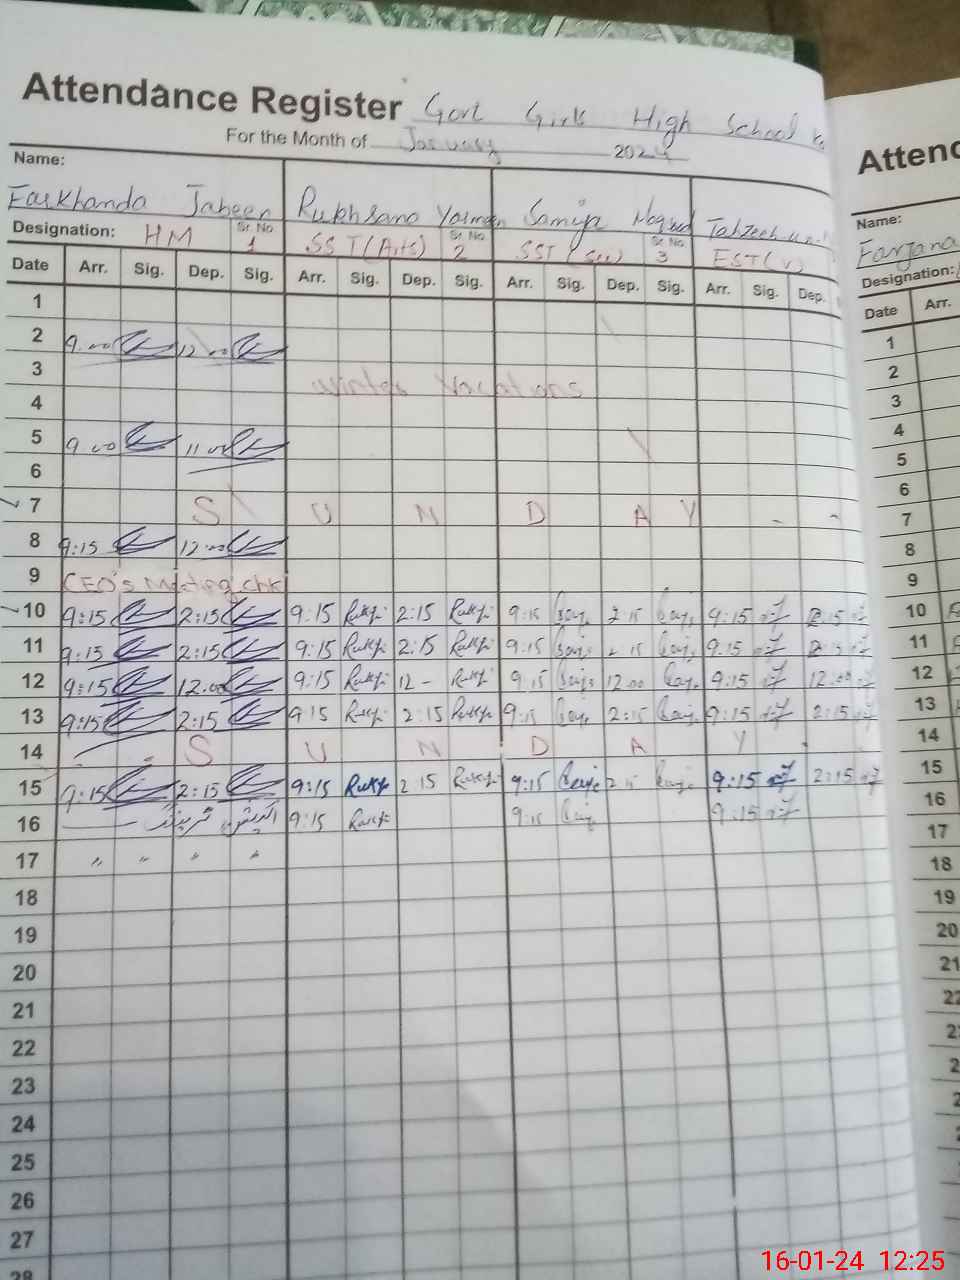 Attendance Register Govt Girls High School
For the Month of January 2024
Name:
Farkhanda Jabeen Rukhsana Yasmeen Samiya
Designation: HM Sr. No. 1 SST(Arts) Sr. No. 2 SST (Sci) Sr. No. 3 EST(V)
Date Arr. Sig. Dep. Sig. Arr. Sig. Dep. Sig. Arr. Sig. Dep. Sig. Arr. Sig. Dep.
1
2 9.00 12.00
3 Winter Vacations
4
5 9.00 11.00
6
7 S U N D A Y
8 9:15 12.00
9 CEO's Meeting
10 9:15 2:15 9:15 2:15 9:15 2:15 9:15 2:15
11 9:15 2:15 9:15 2:15 9:15 2:15 9:15 2:15
12 9:15 12.00 9:15 12 - 9:15 12.00 9:15 12.00
13 9:15 2:15 9:15 2:15 9:15 2:15 9:15 2:15
14 S U N D A Y
15 9:15 2:15 9:15 2:15 9:15 2:15 9:15 2:15
16 9:15 9:15 9:15
17 " " " "
18
19
20
21
22
23
24
25
26
27
28
Name:
Farzana
Designation:
Date Arr.
1
2
3
4
5
6
7
8
9
10
11
12
13
14
15
16
17
18
19
20
21
22
16-01-24 12:25